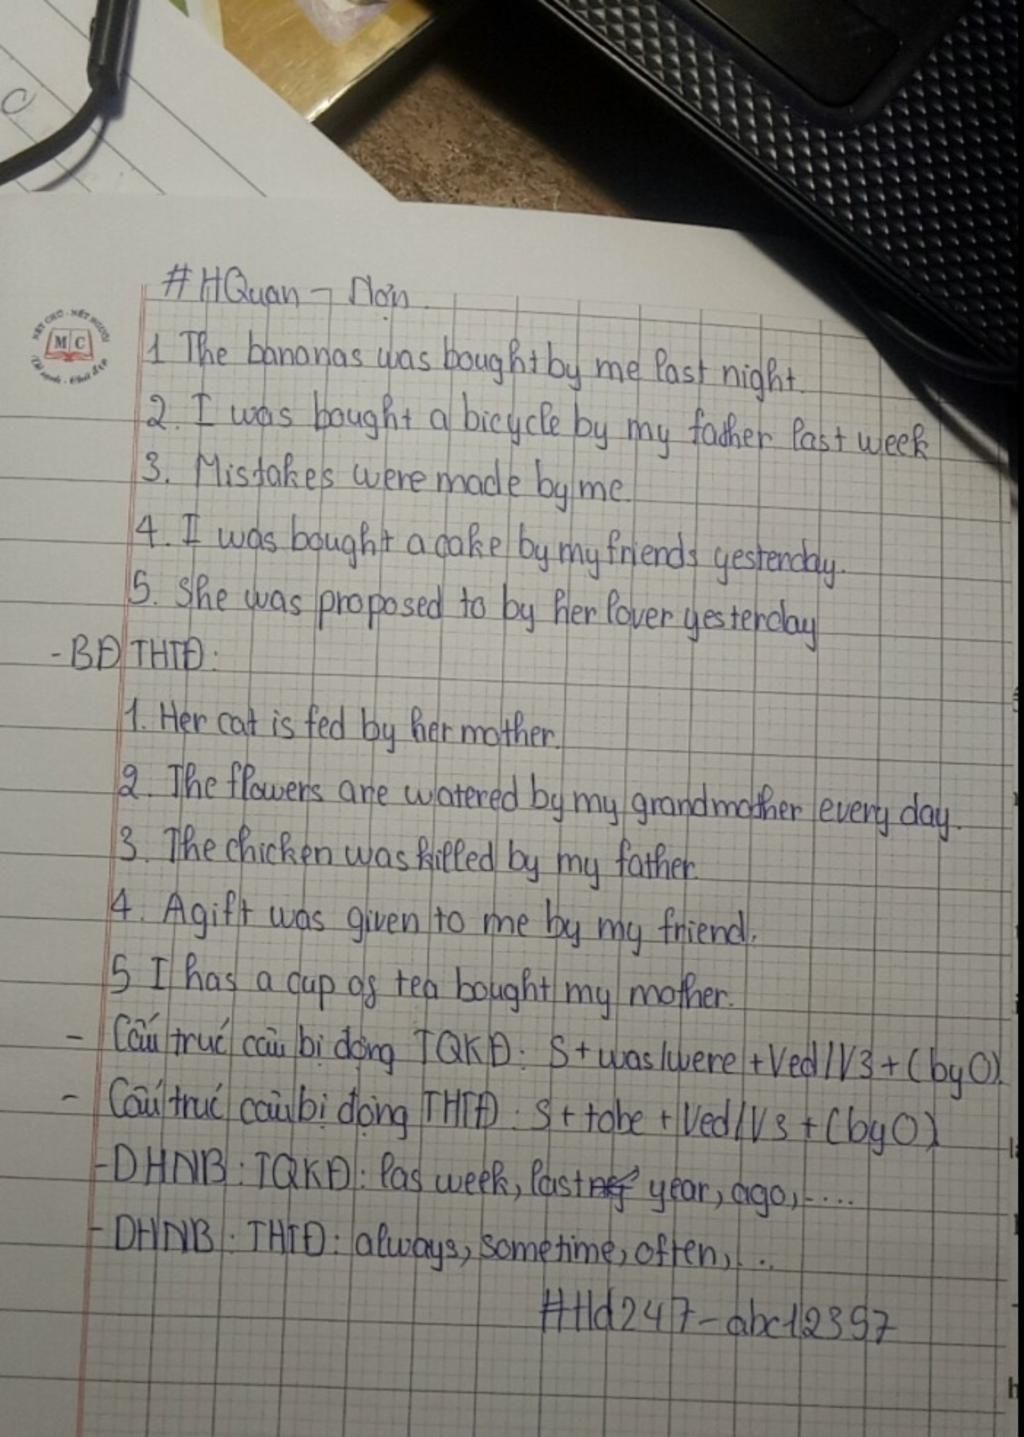 #HQuan - Dọn
NÉT CHỮ - NẾT NGƯỜI
MC
1 The bananas was bought by me last night.
2. I was bought a bicycle by my father last week
3. Mistakes were made by me.
4. I was bought a cake by my friends yesterday.
5. She was proposed to by her lover yesterday
- BĐ THTĐ:
1. Her cat is fed by her mother.
2. The flowers are watered by my grandmother every day.
3. The chicken was killed by my father
4. A gift was given to me by my friend.
5 I has a cup of tea bought my mother.
- Cấu trúc câu bị động TQKĐ: S + was/were + Ved/V3 + (by O)
- Cấu trúc câu bị động THTĐ: S + tobe + Ved/V3 + (by O)
- DHNB: TQKĐ: las week, last year, ago, ....
- DHNB: THTĐ: always, sometime, often, ...
#Hd247-abc12397